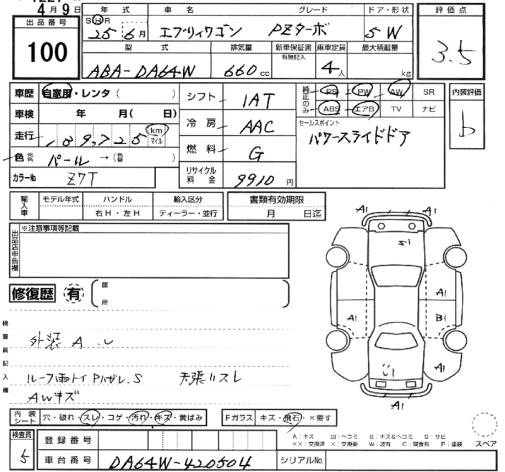 4月9日
出品番号
100
年式 車名 グレード ドア・形状
SHR
25年6月 エブリィワゴン PZターボ 5W
評価点
3.5
型式 排気量 新車保証書 有無記入 乗車定員 最大積載量
ABA-DA64W 660cc 4人 kg
車歴 自家用・レンタ( )
シフト IAT
純正のみ PS PW AW SR
ABS エアB TV ナビ
内装評価
b
車検 年 月
冷房 AAC
セールスポイント
パワースライドドア
走行 109,725 km マイル
燃料 G
色 パール →( )
カラーNo Z7T
リサイクル料金 9910円
輸入車 モデル年式 ハンドル 右H・左H 輸入区分 ディーラー・並行
書類有効期限 月 日迄
出品店申告欄 ※注意事項等記載
修復歴 有 部所
A1
S1
A1
A1
A1
A1
B1
A1
A1
A1
検査員記入欄
外装A.U
ルーフ雨トイ
AWキズ
内装シート 穴・破れ・スレ・コゲ・汚れ・キズ・黄ばみ
Fガラス キズ・飛石・×要す
A:キズ U:ヘコミ B:キズ&ヘコミ S:サビ
スペア
検査員 5
登録番号
車台番号 DA64W-420504
シリアルNo.